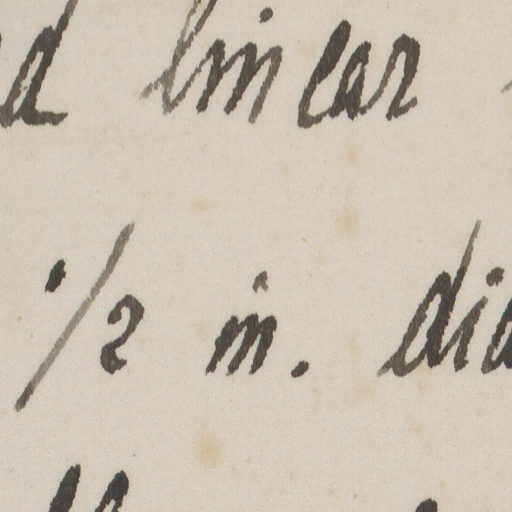 linear
1/2 in. dia